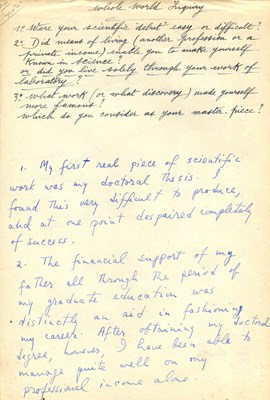 Whole World Inquiry
1º Were your scientific debut easy or difficult?
2º Did means of living (another profession or a
private income) enable you to make yourself
known in science?
or did you live solely through your work of
laboratory?
3º What work (or what discovery) made yourself
more famous?
which do you consider as your master-piece?
1. My first real piece of scientific
work was my doctoral thesis. I
found this very difficult to produce,
and at one point despaired completely
of success.
2. The financial support of my
father all through the period of
my graduate education was
distinctly an aid in fashioning
my career. After obtaining my doctoral
degree, however, I have been able to
manage quite well on my
professional income alone.